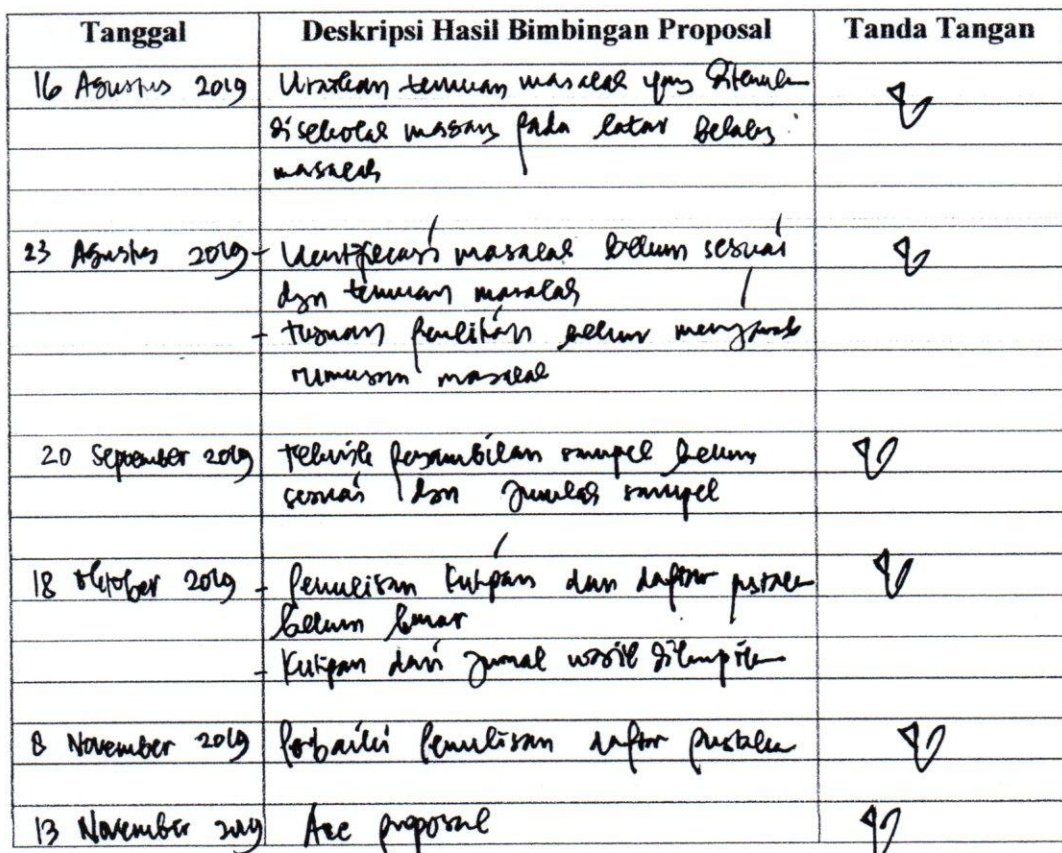 Tanggal Deskripsi Hasil Bimbingan Proposal Tanda Tangan
16 Agustus 2019 Uraikan temuan masalah yang ditemukan
disekolah masing pada latar belakang
masalah
23 Agustus 2019 - Identifikasi masalah belum sesuai
dgn temuan masalah
- tujuan penelitian belum menjawab
rumusan masalah
20 September 2019 teknik pengambilan sampel belum
sesuai dgn jumlah sampel
18 Oktober 2019 - Penulisan kutipan dan daftar pustaka
belum benar
- Kutipan dari jurnal wajib dilampirkan
8 November 2019 Perbaiki penulisan daftar pustaka
13 November 2019 Acc proposal